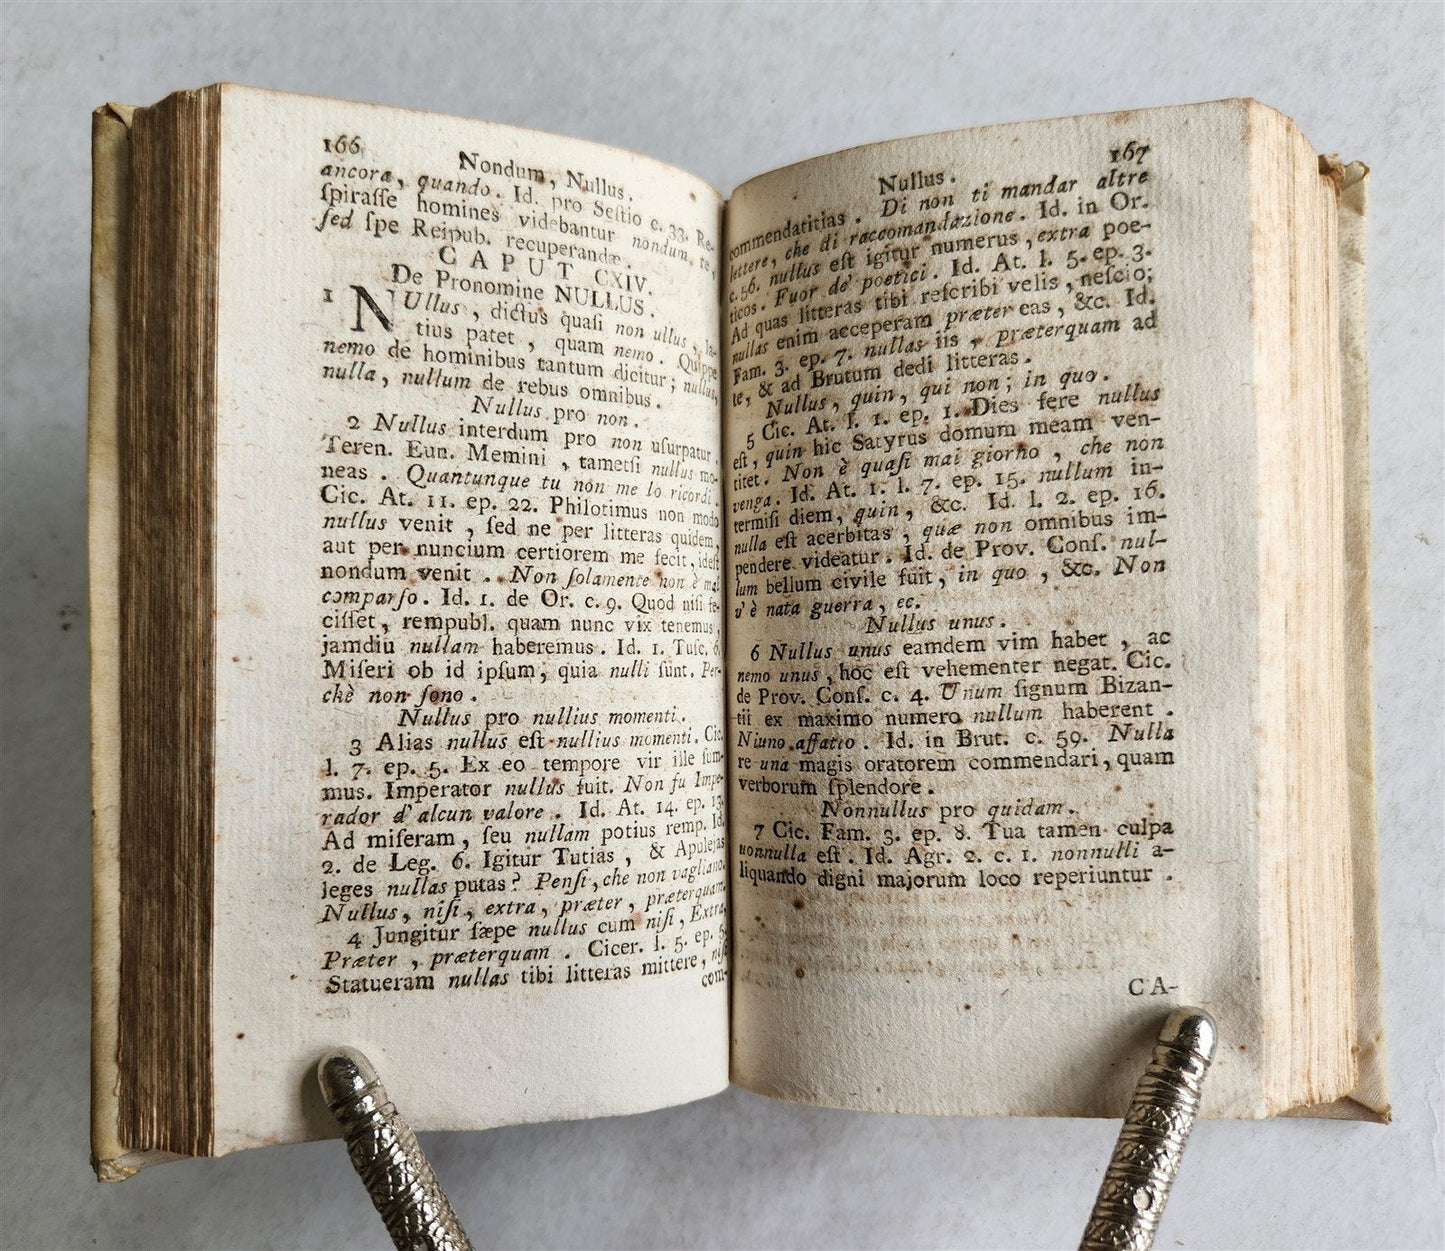 166
Nondum, Nullus.
ancora, quando. Id. pro Seſtio c. 33. Re-
ſpiraſſe homines videbantur nondum, re,
ſed ſpe Reipub. recuperandæ.
CAPUT CXIV.
De Pronomine NULLUS.
1 NUllus, dictus quaſi non ullus, la-
tius patet, quam nemo. Quippe
nemo de hominibus tantum dicitur; nullus,
nulla, nullum de rebus omnibus.
Nullus pro non.
2 Nullus interdum pro non uſurpatur.
Teren. Eun. Memini, tametſi nullus mo-
neas. Quantunque tu non me lo ricordi.
Cic. At. 11. ep. 22. Philotimus non modo
nullus venit, ſed ne per litteras quidem,
aut per nuncium certiorem me fecit, ideſt
nondum venit. Non ſolamente non è mai
comparſo. Id. 1. de Or. c. 9. Quod niſi fe-
ciſſet, rempubl. quam nunc vix tenemus,
jamdiu nullam haberemus. Id. 1. Tuſc. 6.
Miſeri ob id ipſum, quia nulli ſunt. Per-
chè non ſono.
Nullus pro nullius momenti.
3 Alias nullus eſt nullius momenti. Cic.
l. 7. ep. 5. Ex eo tempore vir ille ſum-
mus. Imperator nullus fuit. Non fu Impe-
rador d' alcun valore. Id. At. 14. ep. 13.
Ad miſeram, ſeu nullam potius remp. Id.
2. de Leg. 6. Igitur Tutias, & Apulejas
leges nullas putas? Penſi, che non vagliano.
Nullus, niſi, extra, præter, præterquam.
4 Jungitur ſæpe nullus cum niſi, Extra,
Præter, præterquam. Cicer. l. 5. ep. 5.
Statueram nullas tibi litteras mittere, niſi
com-
167
Nullus.
commendatitias. Di non ti mandar altre
lettere, che di raccomandazione. Id. in Or.
c. 56. nullus eſt igitur numerus, extra poe-
ticos. Fuor de' poetici. Id. At. l. 5. ep. 3.
Ad quas litteras tibi reſcribi velis, neſcio;
nullas enim acceperam præter eas, &c. Id.
Fam. 3. ep. 7. nullas iis, præterquam ad
te, & ad Brutum dedi litteras.
Nullus, quin, qui non; in quo.
5 Cic. At. l. 1. ep. 1. Dies fere nullus
eſt, quin hic Satyrus domum meam ven-
titet. Non è quaſi mai giorno, che non
venga. Id. At. 1. l. 7. ep. 15. nullum in-
termiſi diem, quin, &c. Id. l. 2. ep. 16.
nulla eſt acerbitas, quæ non omnibus im-
pendere videatur. Id. de Prov. Conſ. nul-
lum bellum civile fuit, in quo, &c. Non
v' è nata guerra, ec.
Nullus unus.
6 Nullus unus eamdem vim habet, ac
nemo unus, hoc eſt vehementer negat. Cic.
de Prov. Conſ. c. 4. Unum ſignum Bizan-
tii ex maximo numero nullum haberent.
Niuno affatto. Id. in Brut. c. 59. Nulla
re una magis oratorem commendari, quam
verborum ſplendore.
Nonnullus pro quidam.
7 Cic. Fam. 3. ep. 8. Tua tamen culpa
nonnulla eſt. Id. Agr. 2. c. 1. nonnulli a-
liquando digni majorum loco reperiuntur.
CA-